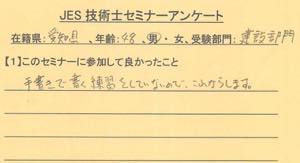 JES 技術士セミナーアンケート
在籍県:愛知県、年齢:48、男・女、受験部門:建設部門
【1】このセミナーに参加して良かったこと
手書きで書く練習をしていないので、これからします。